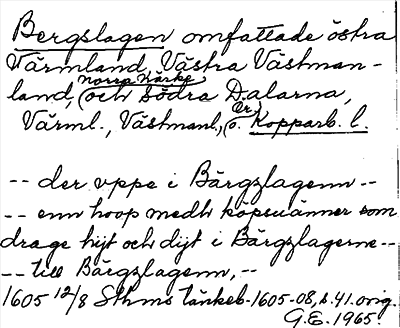 Bergslagen omfattade östra
Värmland, Västra Västman-
norra Närke
land, (och södra Dalarna,
(Ör.)
Värml., Västmanl., o. Kopparb. l.
-- der vppe i Bärgzlagenn --
-- enn hoop medh köpsuänner som
drage hijt och dijt i Bärgzlagerne --
-- till Bärgzlagenn, --
1605 12/8 Sthms tänkeb. 1605-08, s. 41. orig.
G.E. 1965.